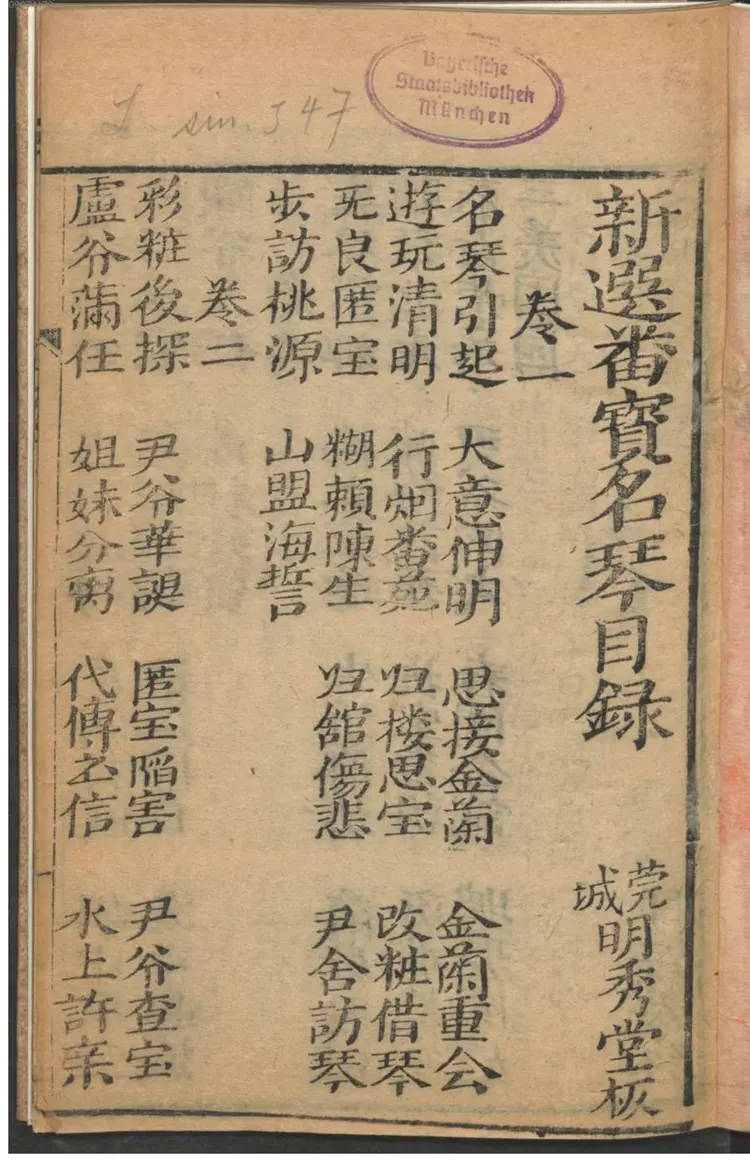 L. sin. J 47
Bayerische
Staatsbibliothek
München
新選番寳名琴目録 莞城明秀堂板
卷一
名琴引起 大意伸明 思接金蘭 金蘭重会
遊玩清明 行烟番苑 归楼思宝 改粧借琴
旡良匿宝 糊頼陳生 归舘傷悲 尹舍訪琴
步訪桃源 山盟海誓
卷二
彩粧後探 尹爷華誤 匿宝陷害 尹爷查宝
盧爷滿任 姐妹分离 代傳信 水上許亲